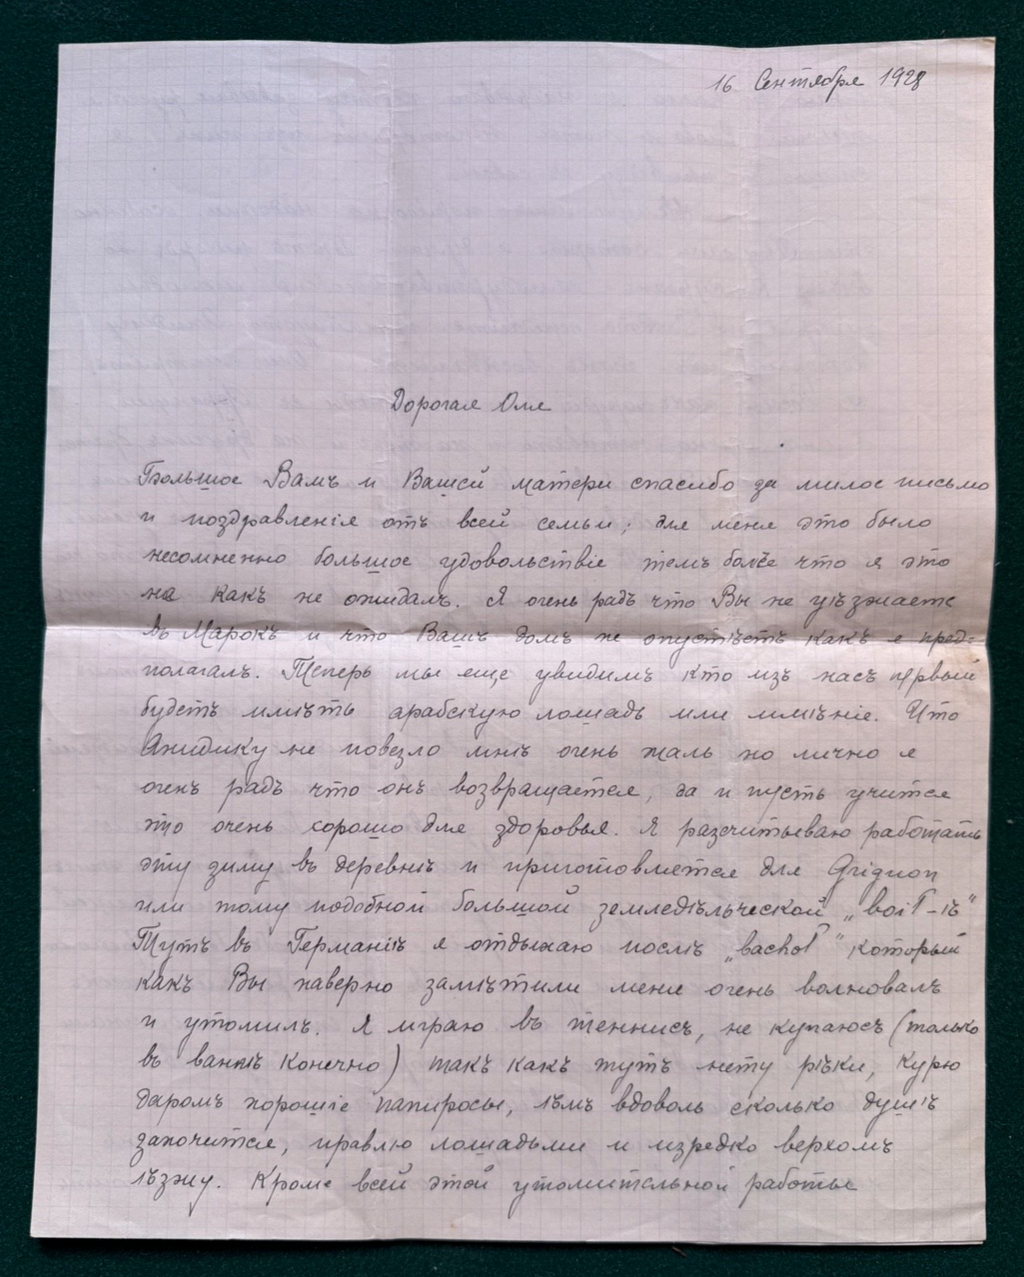 16 Сентября 1928
Дорогая Оля
Большое Вамъ и Вашей матери спасибо за милое письмо
и поздравленія отъ всей семьи; для меня это было
несомненно большое удовольствіе темъ более что я это
на какъ не ожидалъ. Я очень радъ что Вы не уѣзжаете
въ Марокъ и что Вашъ домъ не опустѣетъ какъ я пред-
полагалъ. Теперь мы еще увидимъ кто изъ насъ первый
будетъ имѣть арабскую лошадь или имѣніе. Что
не повезло мнѣ очень жаль но лично я
очень радъ что онъ возвращается, да и пусть учится
это очень хорошо для здоровья. Я разсчитываю работать
эту зиму въ деревнѣ и приготовляется для Grignon
или тому подобной большой земледѣльческой „boit-ѣ“
Тутъ въ Германіи я отдыхаю послѣ „bachot“ который
какъ Вы наверно замѣтили меня очень волновалъ
и утомилъ. Я играю въ теннисъ, не купаюсь (только
въ ваннѣ конечно) такъ какъ тутъ нету рѣки, курю
даромъ хорошіе папиросы, ѣмъ вдоволь сколько душѣ
захочится, правлю лошадьми и изредко верхомъ
ѣзжу. Кроме всей этой утомительной работы